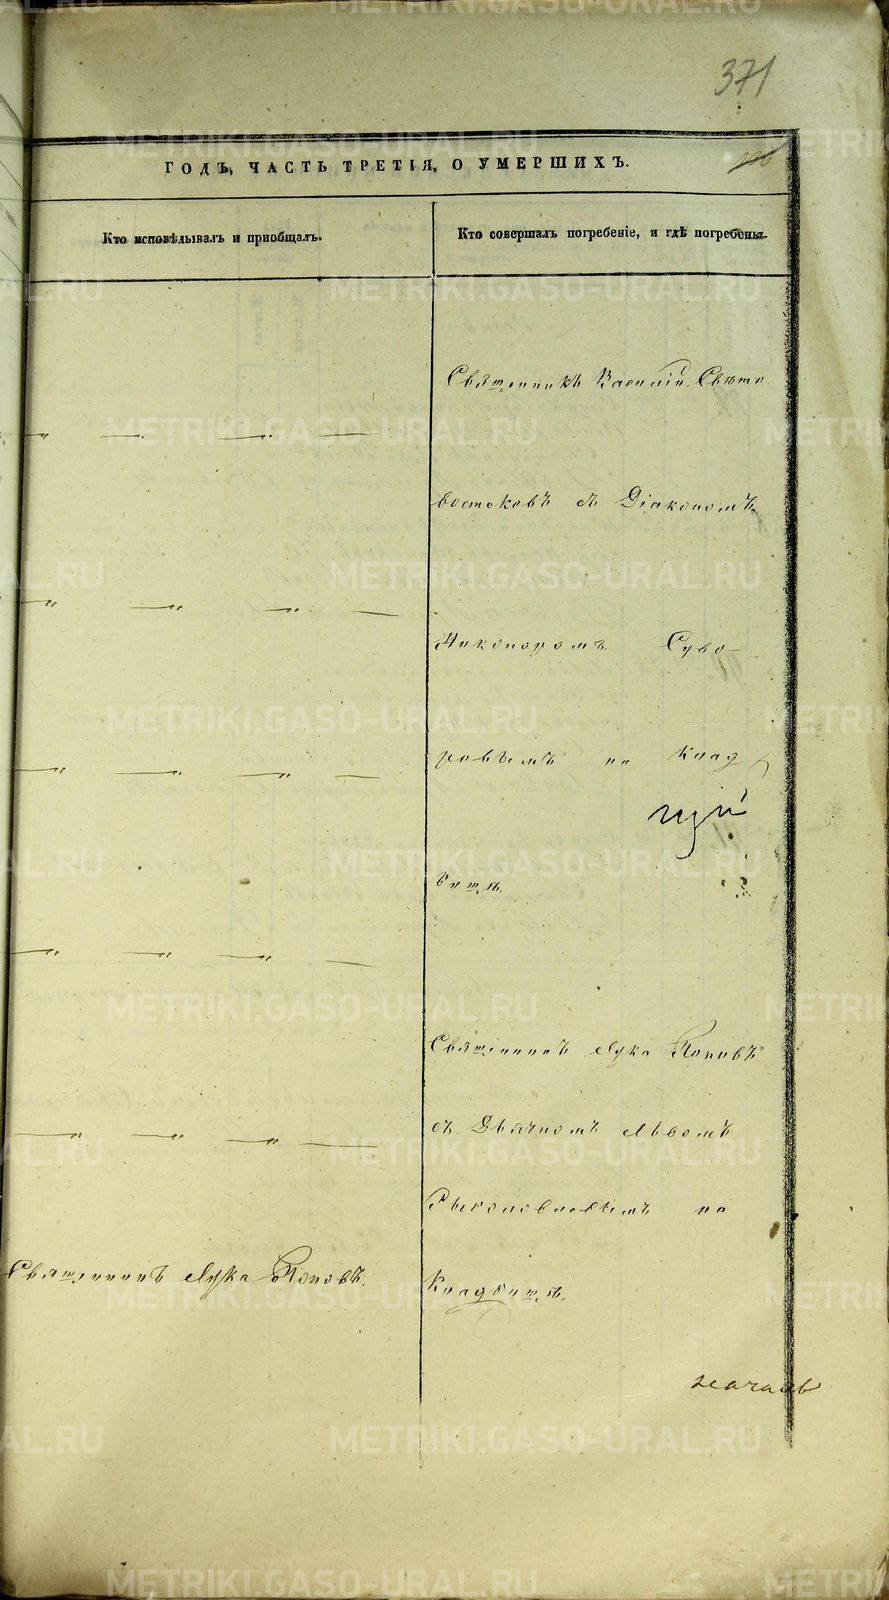 371
ГОДЪ, ЧАСТЬ ТРЕТІЯ, О УМЕРШИХЪ.
Кто исповѣдывалъ и пріобщалъ.
Кто совершалъ погребеніе, и гдѣ погребены.
Священникъ Василій Свѣто
востоковъ съ Діакономъ
Никаноромъ Суво-
ровымъ на клад
бищѣ.
Священникъ Лука Поповъ
съ Дьячкомъ Львомъ
на
Священникъ Лука Поповъ.
Кладбищѣ.
METRIKI.GASO-URAL.RU